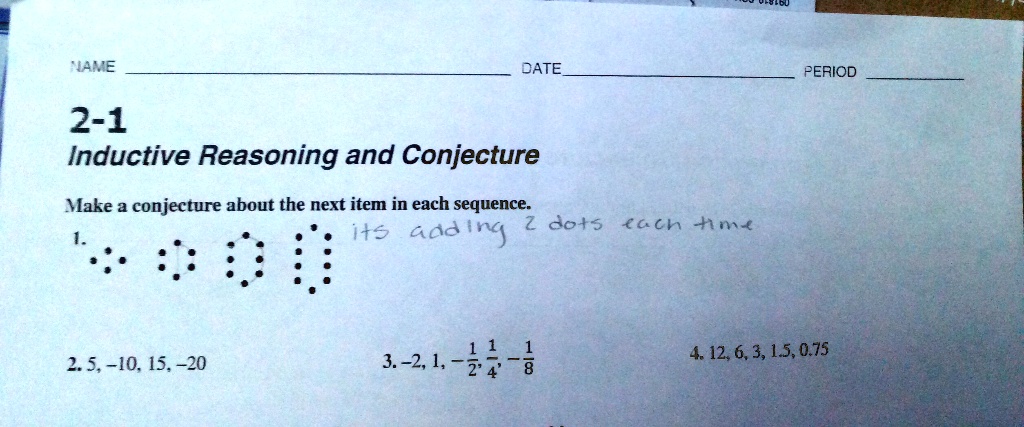 NAME DATE PERIOD
2-1
Inductive Reasoning and Conjecture
Make a conjecture about the next item in each sequence.
1. its adding 2 dots each time
2. 5, –10, 15, –20 3. –2, 1, –1/2, 1/4, –1/8 4. 12, 6, 3, 1.5, 0.75